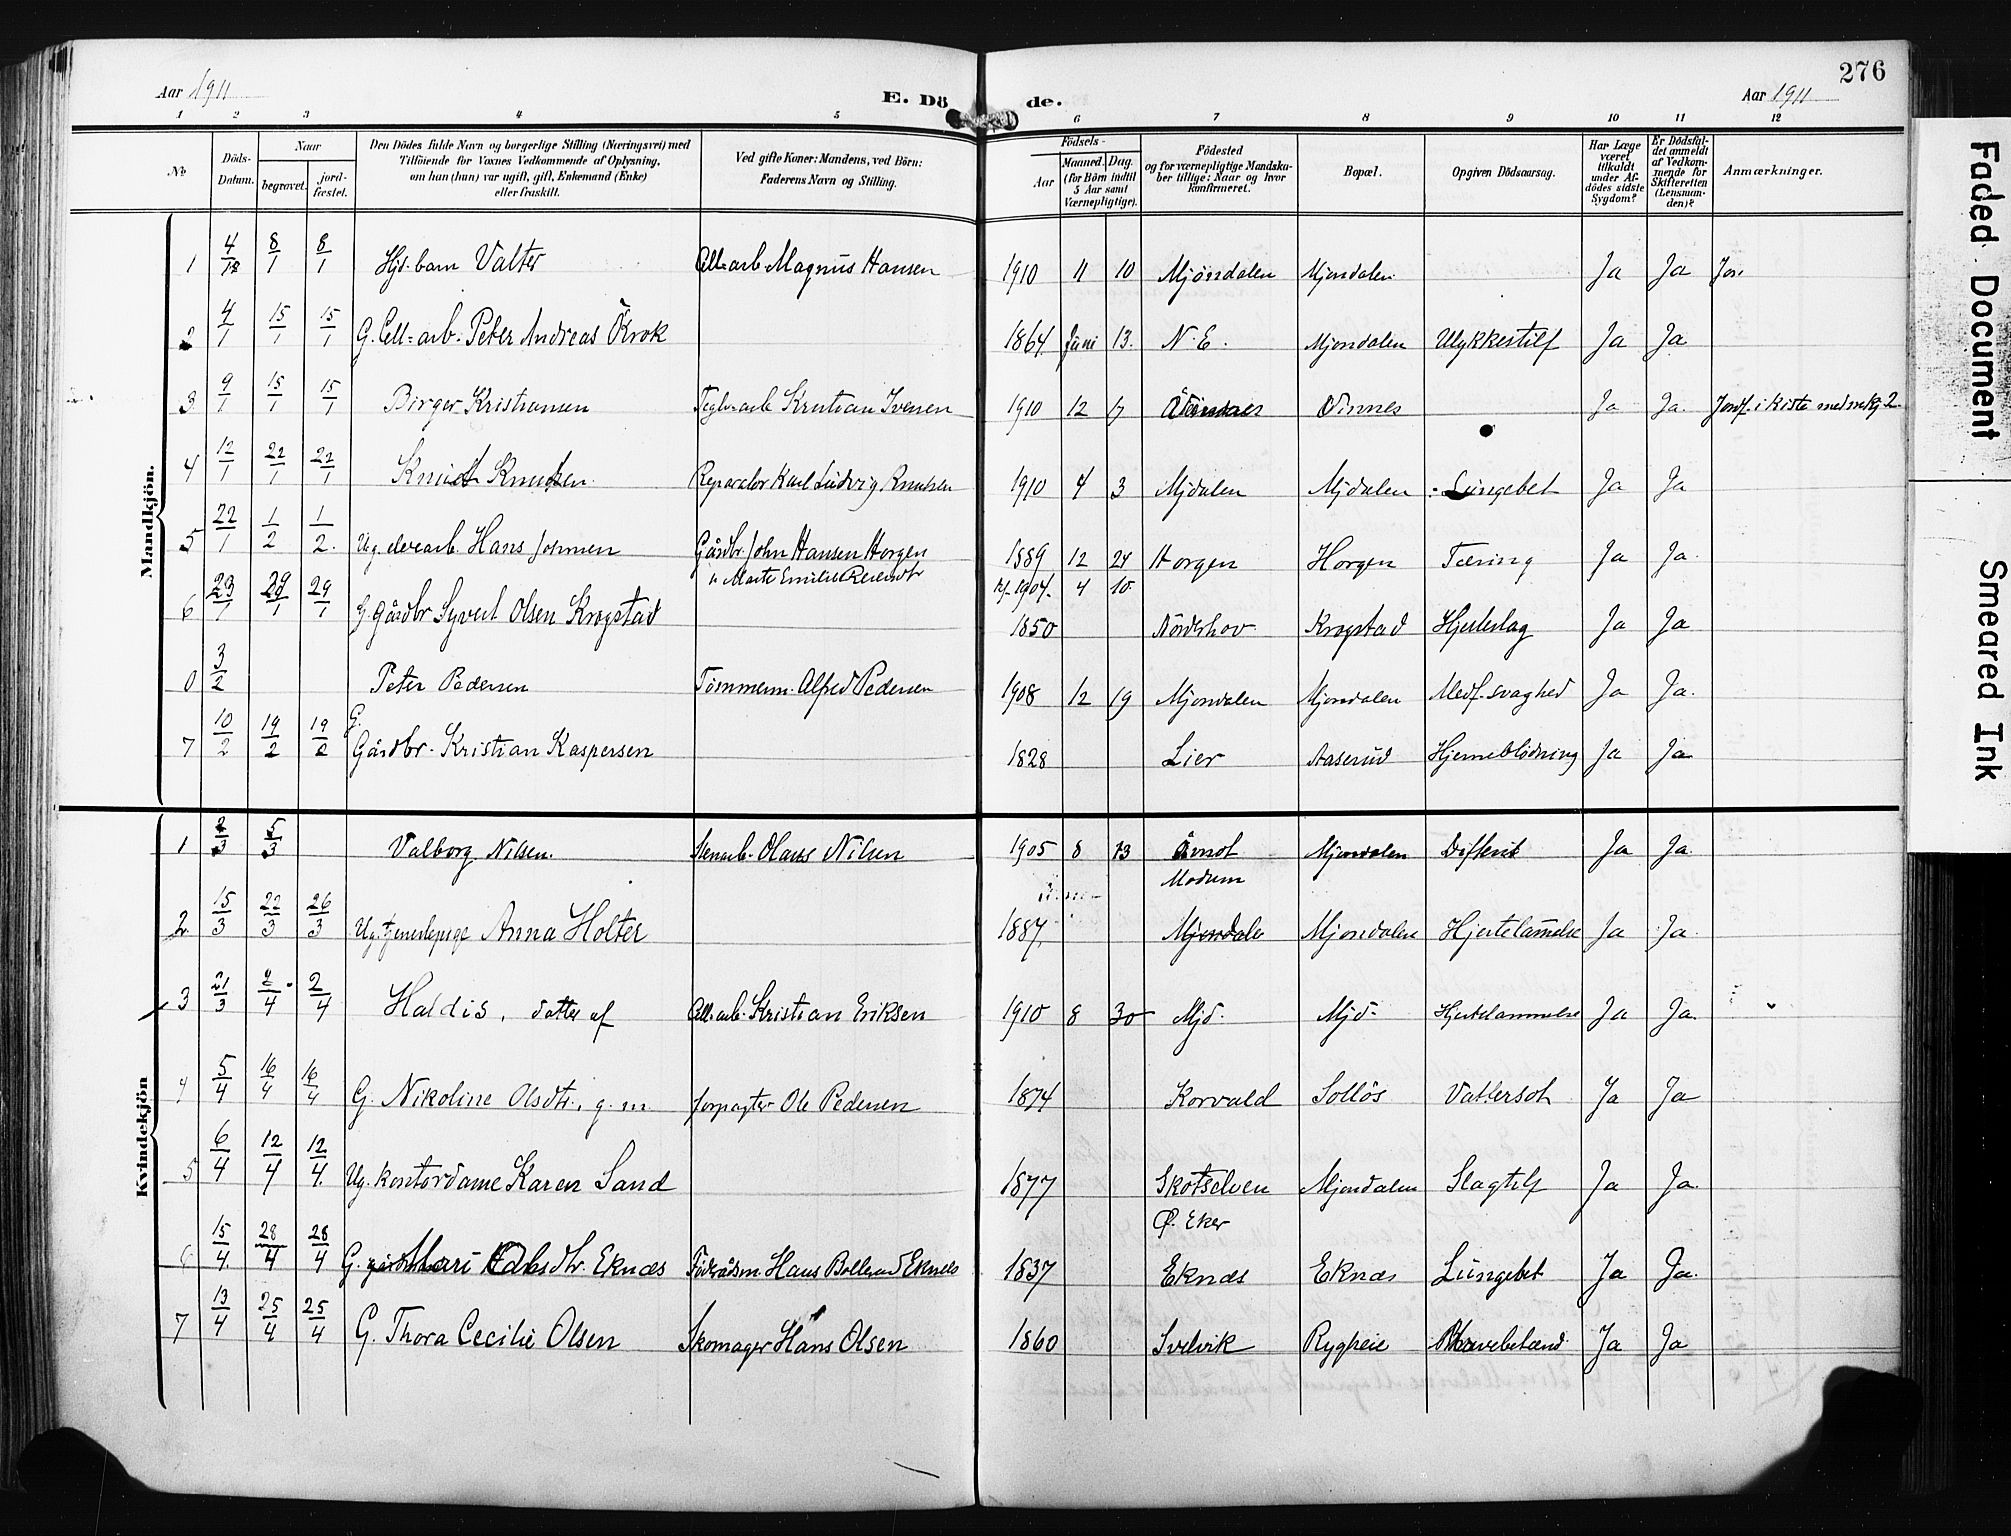 276
Aar 1911
E. Dö de.
Aar 1911
1 2 3 4 5 6 7 8 9 10 11 12
No
Döds-Datum.
Naar
begravet.
jord-fæstet.
Den Dödes fulde Navn og borgerlige Stilling (Næringsvei) med
Tilföiende for Voxnes Vedkommende af Oplysning,
om han (hun) var ugift, gift, Enkemand (Enke)
eller fraskilt.
Ved gifte Koner: Mandens, ved Börn:
Faderens Navn og Stilling.
Födsels-
Aar
Maaned. Dag.
(for Börn indtil
5 Aar samt
Værnepligtige).
Födested
og for værnepligtige Mandska-
ber tillige: Naar og hvor
konfirmeret.
Bopæl.
Opgiven Dödsaarsag.
Har Læge
været
tilkaldt
under Af-
dödes sidste
Sygdom?
Er Dödsfal-
det anmeldt
af Vedkom-
mende for
Skifteretten
(Lensman-
den)?
Anmærkninger.
Mandkjön.
1 4/1 8/1 8/1 Hjd. barn Valter Cell-arb. Magnus Hansen 1910 11 10 Mjöndalen Mjondalen Ja Ja
2 4/1 15/1 15/1 G. Cell-arb. Peter Andreas Krok 1864 Juni 13. N. E. Mjondalen Ulykkestilf Ja Ja
3 9/1 15/1 15/1 Birger Kristiansen Teglv.arb Kristian Iversen 1910 12 17 Vinnes Ja Ja. Jordf. i kiste med mkj 2.
4 12/1 22/1 22/1 Knudt Knudsen Reparatør Karl Ludvig Knutsen 1910 4 3 Mjdalen Mjdalen Lungebet Ja Ja
5 22/1 1/2 1/2. Ug. Hans Johnsen Gårdbr. John Hansen Horgen 1889 12 24 Horgen Horgen Tæring Ja Ja.
u Marte Emilie 1904. 4 10
6 23/1 29/1 29/1 G. Gårdbr Syvert Olsen Krogstad 1850 Nörderhov Krogstad Hjerteslag Ja Ja
0 3/2 Peter Pedersen Tömmerm. Alfred Pedersen 1908 12 19 Mjondalen Mjondalen Medf. svaghed Ja Ja.
7 10/2 19/2 19/2 G. Gårdbr. Kristian Kaspersen 1828 Lier Aaserud Hjerneblödning Ja Ja
Kvindekjön
1 2/3 5/3 Valborg Nilsen. Stenarb. Olaus Nilsen 1905 8 13 Åmot Mjondalen Difterit Ja Ja.
Modum
2 15/3 22/3 26/3 Ug. tjenestepige Anna Holter 1887. Mjondale Mjondalen Hjertelammelse Ja Ja.
3 21/3 2/4 2/4 Haldis, datter af Cell-arb. Kristian Eriksen 1910 8 30 Mjd. Mjd. Hjertelammelse Ja Ja.
4 5/4 16/4 16/4 G. Nikoline Olsdtr., g. m. forpagter Ole Pedersen 1874 Korvald Solløs Vattersot Ja Ja
5 6/4 12/4 12/4. Ug. kontordame Karen Sand 1877 Skotselven Mjondalen Slagtilf Ja Ja.
Ø. Eker
6 15/4. 28/4 28/4 G. Mari Eknæs Föderådsm. Hans Eknæs 1837 Eknæs Eknæs Lungebet Ja Ja.
7 13/4 25/4 25/4 G. Thora Cecilie Olsen Skomager Hans Olsen 1860 Svelvik Rygheie Ja Ja
Faded Document
Smeared Ink